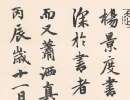 楊景度書
深於書者
而又蕭洒真
丙辰歲十一日